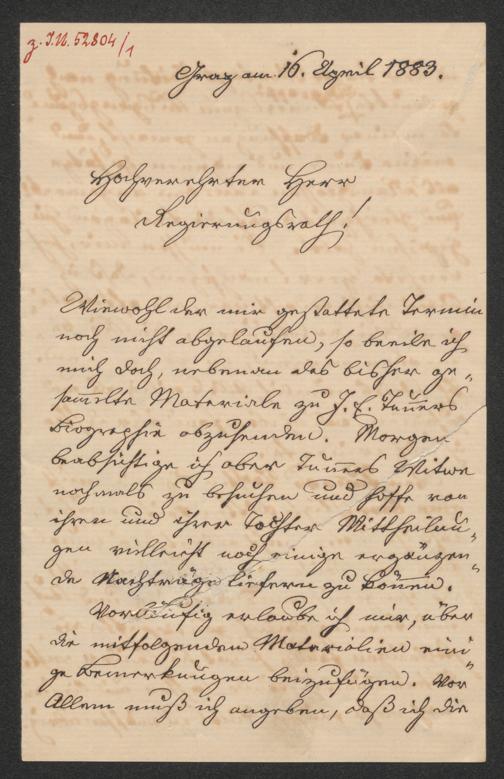 z. I.N. 52804/1
Graz am 16. April 1883.
Hochverehrter Herr
Regierungsrath!
Wiewohl der mir gestattete Termin
noch nicht abgelaufen, so beeile ich
mich doch, nebenan das bisher ge-
sam̄elte Materiale zu J. E. Tuners
Biographie abzusenden. Morgen
beabsichtige ich aber Tuners Witwe
nochmals zu besuchen und hoffe von
ihren und ihrer Tochter Mittheilun-
gen vielleicht noch einige ergänzen-
de Nachträge liefern zu kön̄en.
Vorläufig erlaube ich mir, über
die mitfolgenden Materialien eini-
ge Bemerkungen beizufügen. Vor
Allem muß ich angeben, daß ich die